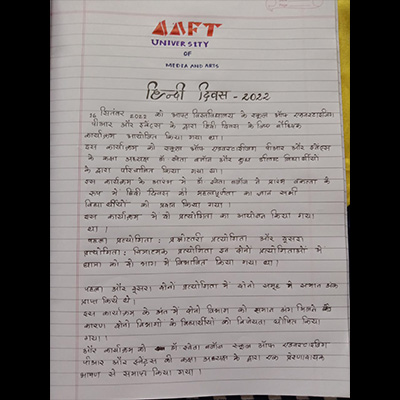 AAFT
UNIVERSITY
OF
MEDIA AND ARTS
हिन्दी दिवस - 2022
सितंबर 2022 को आफ्ट विश्वविद्यालय के स्कूल ऑफ एडवरटाइजिंग
पीआर और इवेंट्स के द्वारा हिंदी दिवस के लिए
कार्यक्रम आयोजित किया गया था।
इस कार्यक्रम को स्कूल ऑफ एडवरटाइजिंग पीआर और इवेंट्स
के कक्षा अध्यक्ष और कुछ विद्यार्थियों
के द्वारा परिचालित किया गया था।
इस कार्यक्रम के आरंभ में डॉ श्वेता ने
रूप में हिंदी दिवस की महत्वपूर्णता का ज्ञान सभी
विद्यार्थीयों को प्रदान किया गया।
इस कार्यक्रम में दो प्रत्योगिता का आयोजन किया गया
था।
पहला प्रत्योगिता: प्रश्नोत्तरी प्रत्योगिता और दूसरा
प्रत्योगिता: प्रत्योगिता इन दोनो प्रत्योगिताओं में
छात्रों को दो भाग में विभाजित किया गया था।
पहला और दूसरा दोनो प्रत्योगिता में दोनो समूह ने समान अंक
प्राप्त किये थे।
इस कार्यक्रम के अंत में दोनो विभाग को समान अंग मिलने के
कारण दोनो विभागों के विद्यार्थियों को विजेयता घोषित किया
गया।
और कार्यक्रम को डॉ श्वेता स्कूल ऑफ एडवरटाइजिंग
पीआर और इवेंट्स की कक्षा अध्यक्ष के द्वारा एक प्रेरणादायक
भाषण से समाप्त किया गया।